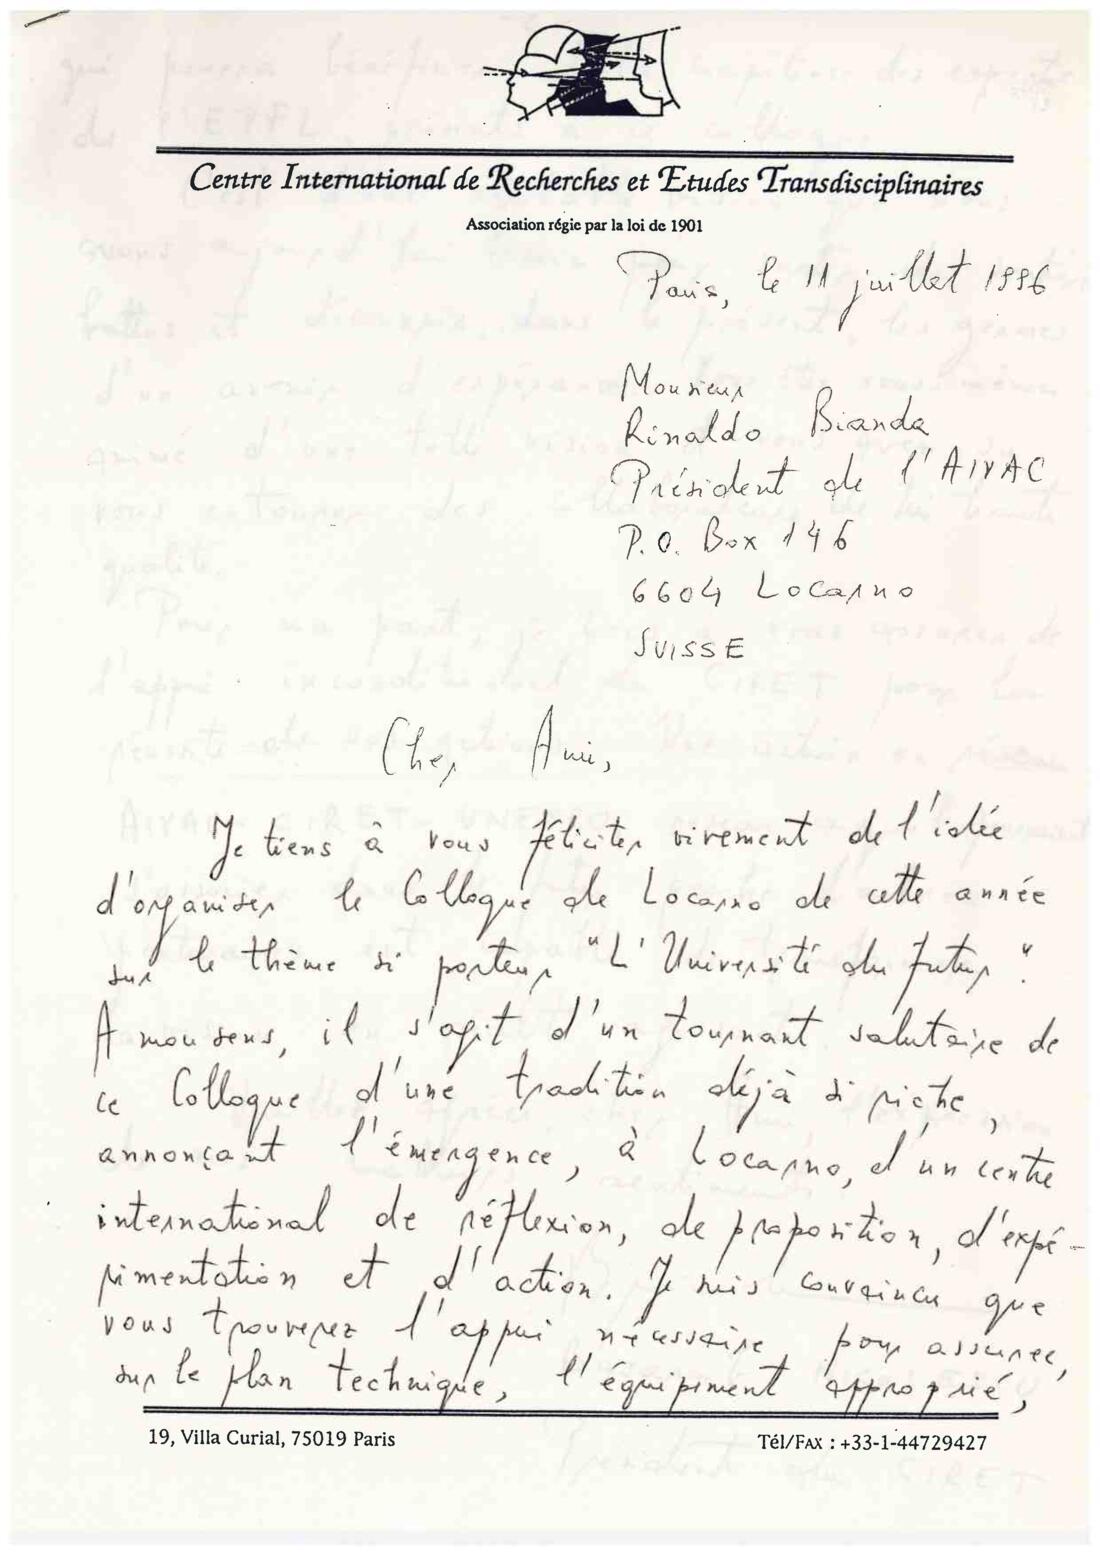 Centre International de Recherches et Etudes Transdisciplinaires
Association régie par la loi de 1901
Paris, le 11 juillet 1996
Monsieur
Rinaldo Bianda
Président de l'AIVAC
P.O. Box 146
6604 Locarno
SUISSE
Cher Ami,
Je tiens à vous féliciter vivement de l'idée
d'organiser le Colloque de Locarno de cette année
sur le thème si porteur "L'Université du futur".
A mon sens, il s'agit d'un tournant salutaire de
ce Colloque d'une tradition déjà si riche,
annonçant l'émergence, à Locarno, d'un centre
international de réflexion, de proposition, d'expé-
rimentation et d'action. Je suis convaincu que
vous trouverez l'appui nécessaire pour assurer,
sur le plan technique, l'équipement approprié,
19, Villa Curial, 75019 Paris
Tél/FAX : +33-1-44729427